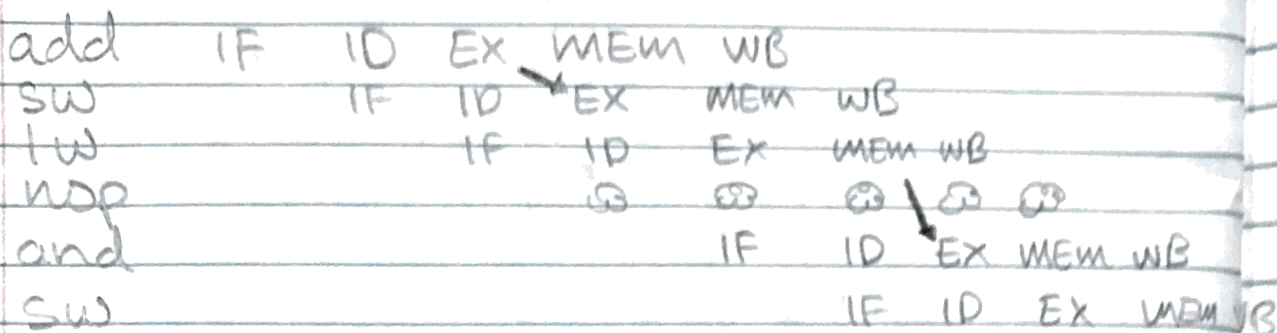 add IF ID EX MEM WB
sw IF ID EX MEM WB
lw IF ID EX MEM WB
nop
and IF ID EX MEM WB
sw IF ID EX MEM WB